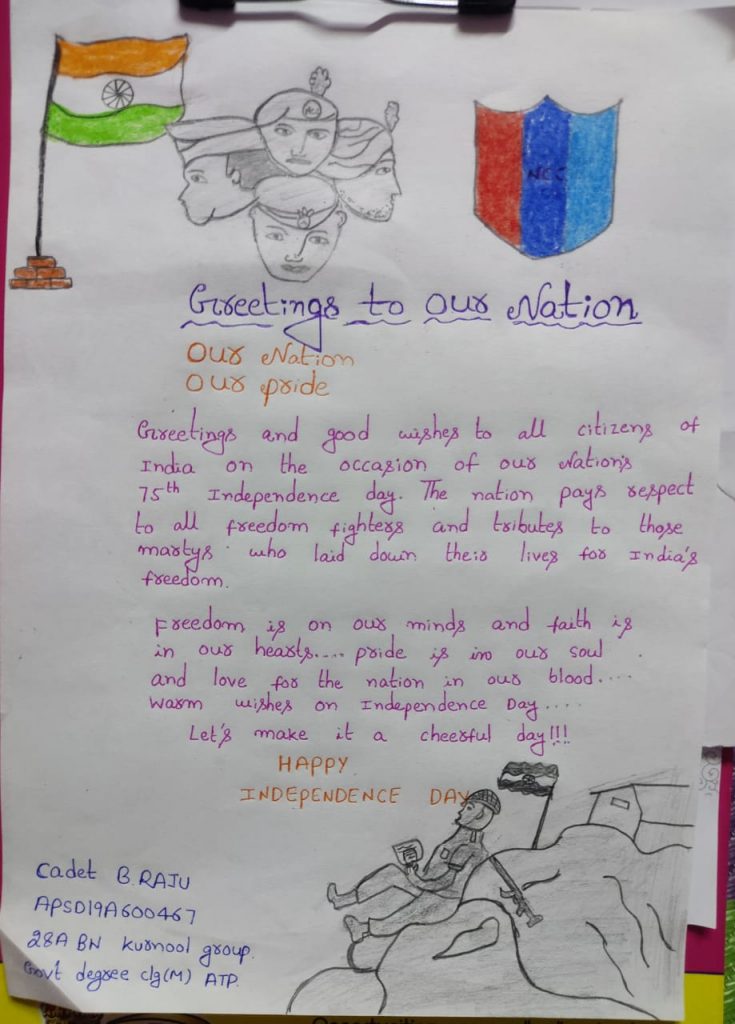 NCC
Greetings to Our Nation
Our Nation
Our pride
Greetings and good wishes to all citizens of
India on the occasion of our Nation's
75th Independence day. The nation pays respect
to all freedom fighters and tributes to those
martys who laid down their lives for India's
freedom.
Freedom is on our minds and faith is
in our hearts.... pride is in our soul .
and love for the nation in our blood....
warm wishes on Independence Day....
Let's make it a cheerful day!!!
HAPPY
INDEPENDENCE DAY
Cadet B.RAJU
APSD19A600467
28A BN kurnool group.
Govt degree clg(M) ATP.